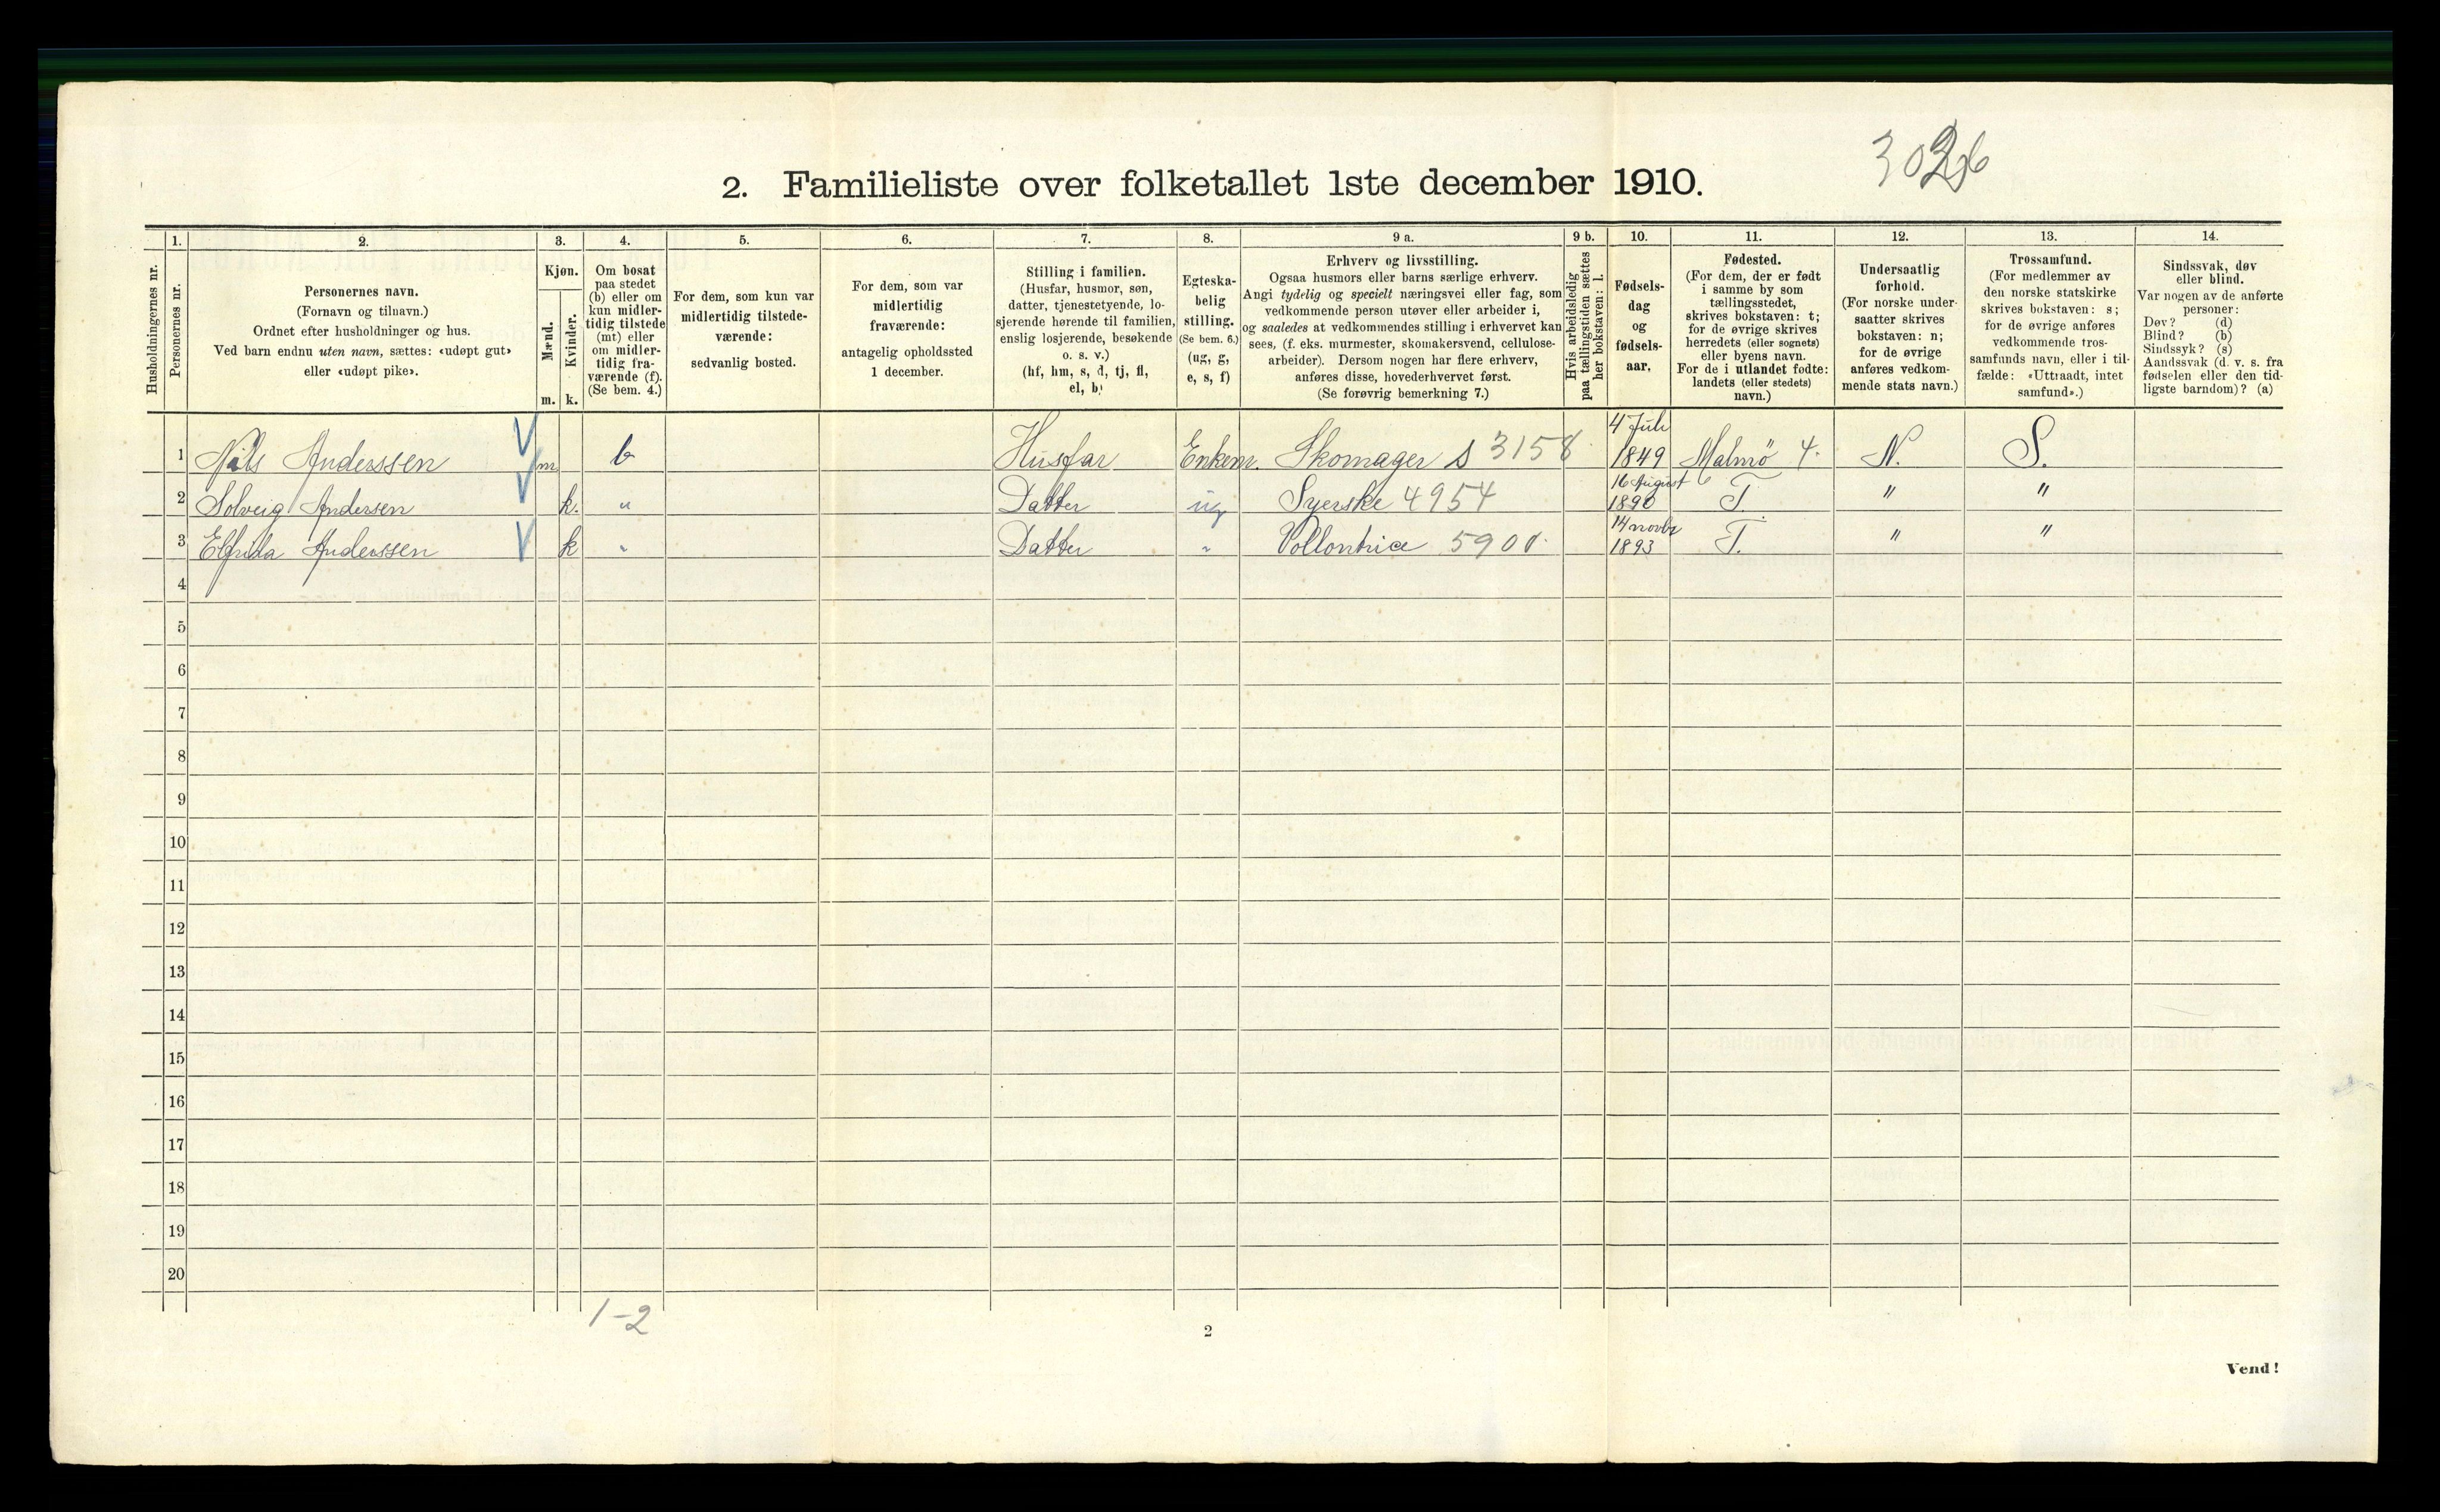 3026
2. Familieliste over folketallet 1ste december 1910.
Husholdningernes nr.
1.
Personernes nr.
2.
Personernes navn.
(Fornavn og tilnavn.)
Ordnet efter husholdninger og hus.
Ved barn endnu uten navn, sættes: «udøpt gut»
eller «udøpt pike».
3.
Kjøn.
Mænd.
m.
Kvinder.
k.
4.
Om bosat
paa stedet
(b) eller om
kun midler-
tidig tilstede
(mt) eller
om midler-
tidig fra-
værende (f).
(Se bem. 4.)
5.
For dem, som kun var
midlertidig tilstede-
værende:
sedvanlig bosted.
6.
For dem, som var
midlertidig
fraværende:
antagelig opholdssted
1 december.
7.
Stilling i familien.
(Husfar, husmor, søn,
datter, tjenestetyende, lo-
sjerende hørende til familien,
enslig losjerende, besøkende
o. s. v.)
(hf, hm, s, d, tj, fl,
el, b)
8.
Egteska-
belig
stilling.
(Se bem. 6.)
(ug, g,
e, s, f)
9 a.
Erhverv og livsstilling.
Ogsaa husmors eller barns særlige erhverv.
Angi tydelig og specielt næringsvei eller fag, som
vedkommende person utøver eller arbeider i,
og saaledes at vedkommendes stilling i erhvervet kan
sees, (f. eks. murmester, skomakersvend, cellulose-
arbeider). Dersom nogen har flere erhverv,
anføres disse, hovederhvervet først.
(Se forøvrig bemerkning 7.)
9 b.
Hvis arbeidsledig
paa tællingstiden sættes
her bokstaven: l.
10.
Fødsels-
dag
og
fødsels-
aar.
11.
Fødested.
(For dem, der er født
i samme by som
tællingsstedet,
skrives bokstaven: t;
for de øvrige skrives
herredets (eller sognets)
eller byens navn.
For de i utlandet fødte:
landets (eller stedets)
navn.)
12.
Undersaatlig
forhold.
(For norske under-
saatter skrives
bokstaven: n;
for de øvrige
anføres vedkom-
mende stats navn.)
13.
Trossamfund.
(For medlemmer av
den norske statskirke
skrives bokstaven: s;
for de øvrige anføres
vedkommende tros-
samfunds navn, eller i til-
fælde: «Uttraadt, intet
samfund».)
14.
Sindssvak, døv
eller blind.
Var nogen av de anførte
personer:
Døv? (d)
Blind? (b)
Sindssyk? (s)
Aandssvak (d. v. s. fra
fødselen eller den tid-
ligste barndom)? (a)
1 Nils Anderssen m b Husfar Enkem. Skomager s 3158 4 Juli 1849 Malmö 4. N. S.
2 Solveig Andersen k. " Datter ug Syerske 4954 16 August 1890 T. " "
3 Elfrida Anderssen k " Datter " Vollontrice 5901 14 novbr 1893 T. " "
4
5
6
7
8
9
10
11
12
13
14
15
16
17
18
19
20
1-2
2
Vend!